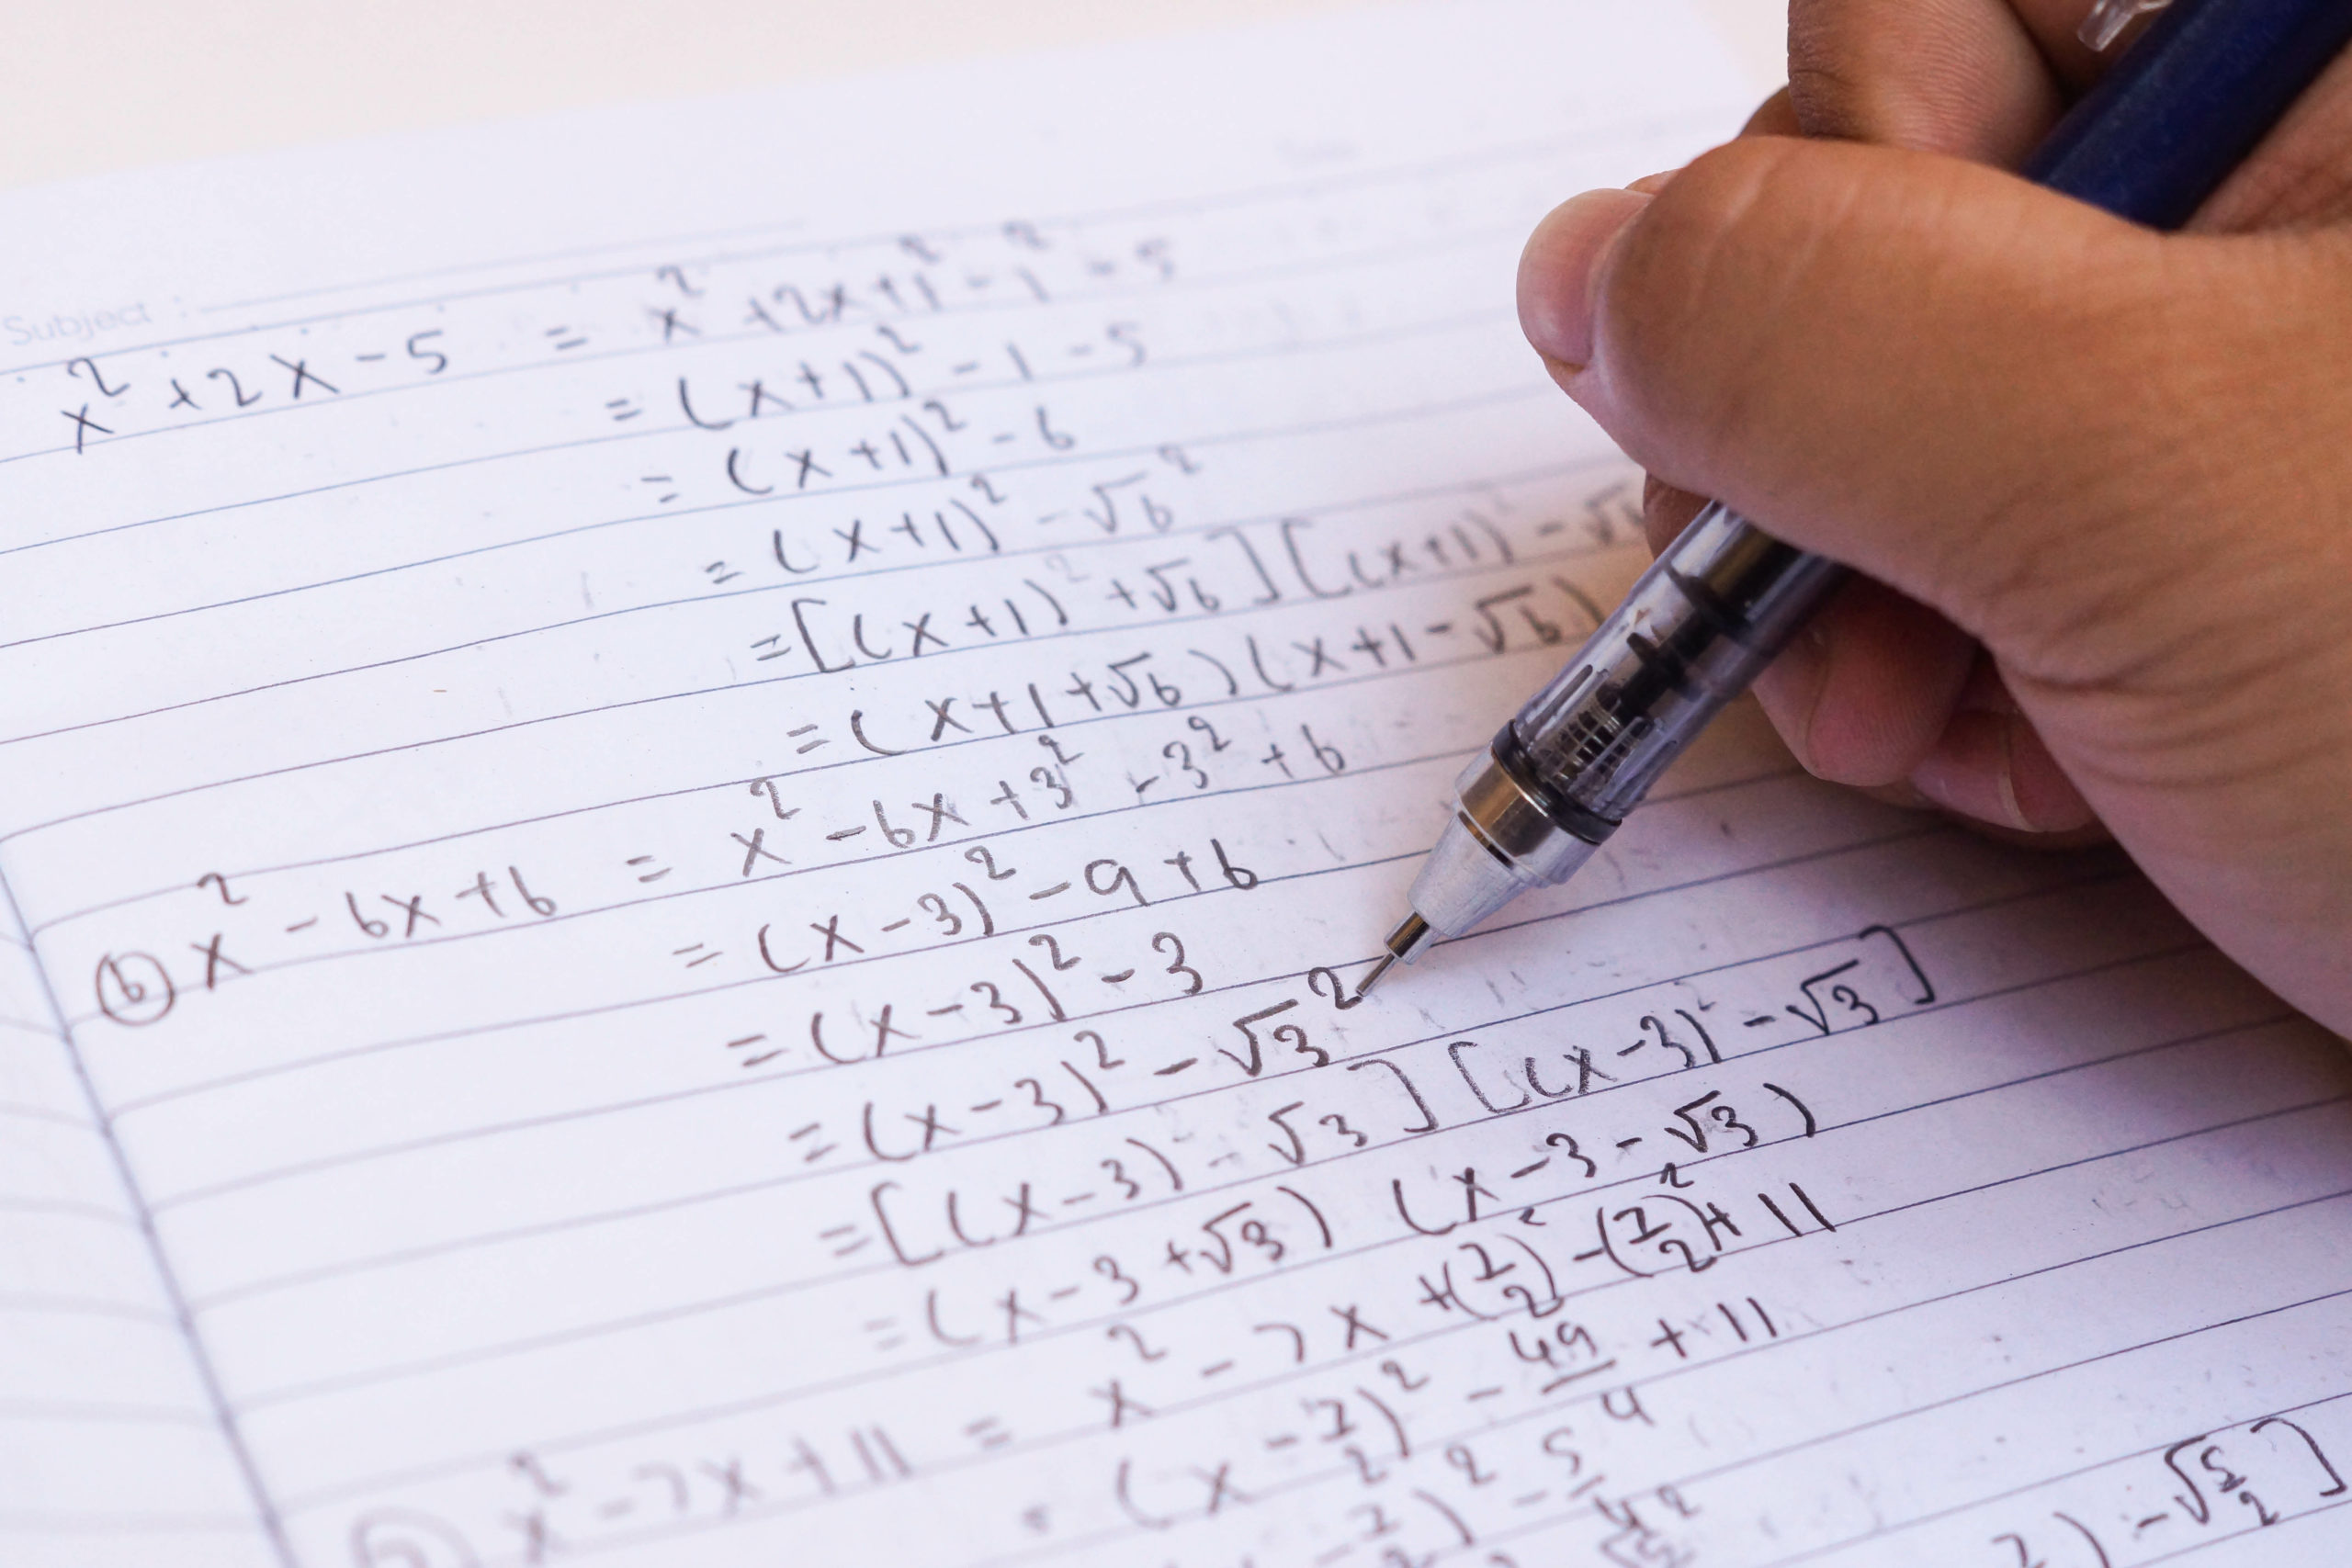 Subject :
x² + 2x - 5 = x² + 2x + 1² - 1² - 5
= (x+1)² - 1 - 5
= (x+1)² - 6
= (x+1)² - √6²
= [(x+1)² + √6] [(x+1)² - √6
= (x+1+√6) (x+1-√6)
(b) x² - 6x + 6 = x² - 6x + 3² - 3² + 6
= (x-3)² - 9 + 6
= (x-3)² - 3
= (x-3)² - √3²
= [(x-3) - √3] [(x-3) - √3]
= (x-3+√3) (x-3-√3)
x² - 7x + 11 = x² - 7x + (7/2)² - (7/2)² + 11
= (x - 7/2)² - 49/4 + 11
7/2)² - 5/4
) - √5/2]